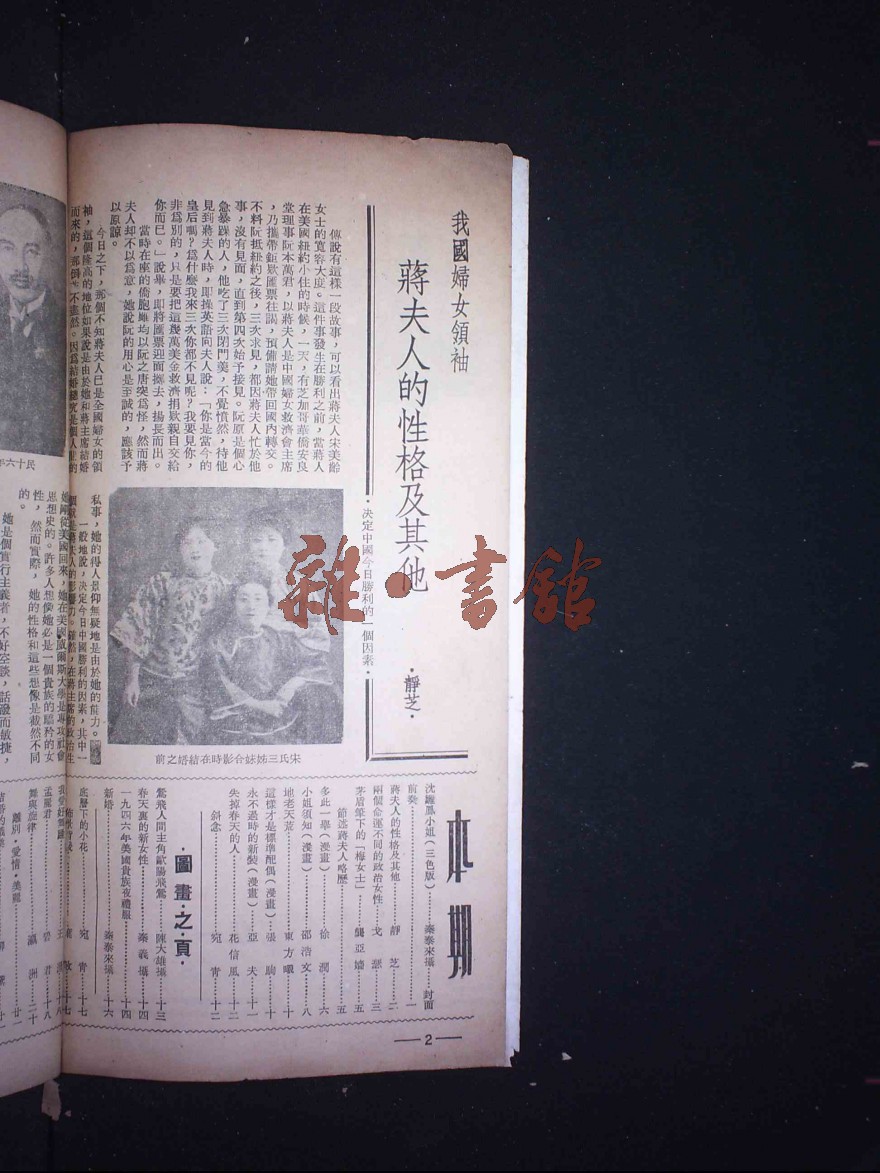 我國婦女領袖
蔣夫人的性格及其他
·靜芝·
·決定中國今日勝利的一個因素·
傳說有這樣一段故事，可以看出蔣夫人宋美齡
女士的寬容大度。這件事發生在勝利之前，當蔣夫人
在美國紐約小住的時候，一天，有芝加哥華僑安良
堂理事阮本萬君，以蔣夫人是中國婦女救濟會主席
，乃攜帶鉅欵匯票往謁，預備請她帶回國內轉交。
不料阮抵紐約之後，三次求見，都因蔣夫人忙於他
事，沒有見面，直到第四次始予接見。阮原是個心
急暴躁的人，他吃了三次閉門羹，不覺憤然，待他
見到蔣夫人時，即操英語向夫人說：「你是當今的
皇后嗎？爲什麼我來三次你都不見呢？我要見你，
非爲別的，只是要把這幾萬美金救濟捐欵親自交給
你而已。」說畢，即將匯票迎面擲去，揚長而出。
當時在座的僑胞雖均以阮之唐突爲怪，然而蔣
夫人却不以爲意，她說阮的用心是至誠的，應該予
以原諒。
今日之下，那個不知蔣夫人已是全國婦女的領
袖，這個隆高的地位如果說是由於她和蔣主席結婚
而來的，那倒也不盡然。因爲結婚總究是個人的
宋氏三姊妹合影時在結婚之前
私事，她的得人景仰無疑地是由於她的能力。
一般地說，決定今日中國勝利的因素，其中一
個就是蔣夫人的影響力。雖然，在蔣主席的政治生
她剛從美國回來，她在美國威爾斯大學是專攻社會
思想史的。許多人想像她必是一個貴族的驕矜的女
性，然而實際，她的性格和這些想像是截然不同
的。
她是個實行主義者，不好空談，活潑而敏捷，
民十六年
本期
沈麗鳳小姐（三色版）……秦泰來攝……封面
前奏……一
蔣夫人的性格及其他……靜芝……二
兩個命運不同的政治女性……戈瑟……三
茅盾筆下的「梅女士」……龔亞嬙……五
節述蔣夫人略歷……五
多此一舉（漫畫）……徐潤……六
小姐須知（漫畫）……邵浩文……八
地老天荒……東方曦……十
這樣才是標準配偶（漫畫）……張駒……十
永不過時的新裝（漫畫）……亞夫……十一
失掉春天的人……花信風……十二
斜念……宛青……十二
·圖畫之頁·
鶯飛人間主角歐陽飛鶯……陳大雄攝……十三
春天裏的新女性……秦義攝……十四
一九四六年美國貴族夜禮服……十四
新婚……秦泰來攝……十六
底層下的小花……宛青……十七
孟麗君……碧君……十八
舞與旋律……瀛洲……二十
離別·愛情·美麗……廿一
—2—
雜·書館